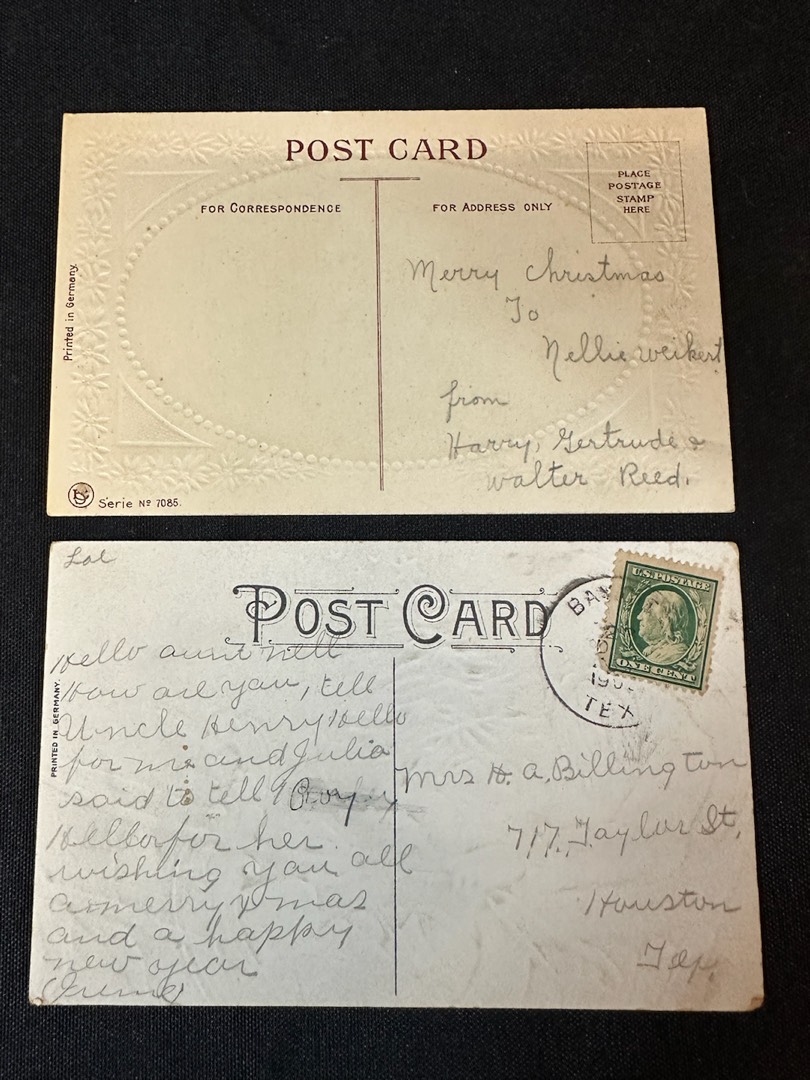 POST CARD
FOR CORRESPONDENCE
FOR ADDRESS ONLY
PLACE
POSTAGE
STAMP
HERE
Printed in Germany.
Merry Christmas
To
Nellie Weikert
from
Harry, Gertrude &
Walter Reed.
Serie No 7085.
POST CARD
U.S. POSTAGE
ONE CENT
BAY
190
TEX
PRINTED IN GERMANY.
Hello aunt nell
How are you, tell
Uncle Henry Hello
for me and Julia
said to tell
Hello for her
wishing you all
a merry xmas
and a happy
new year
(Irene)
Mrs H. A. Billington
717. Taylor St,
Houston
Tex.